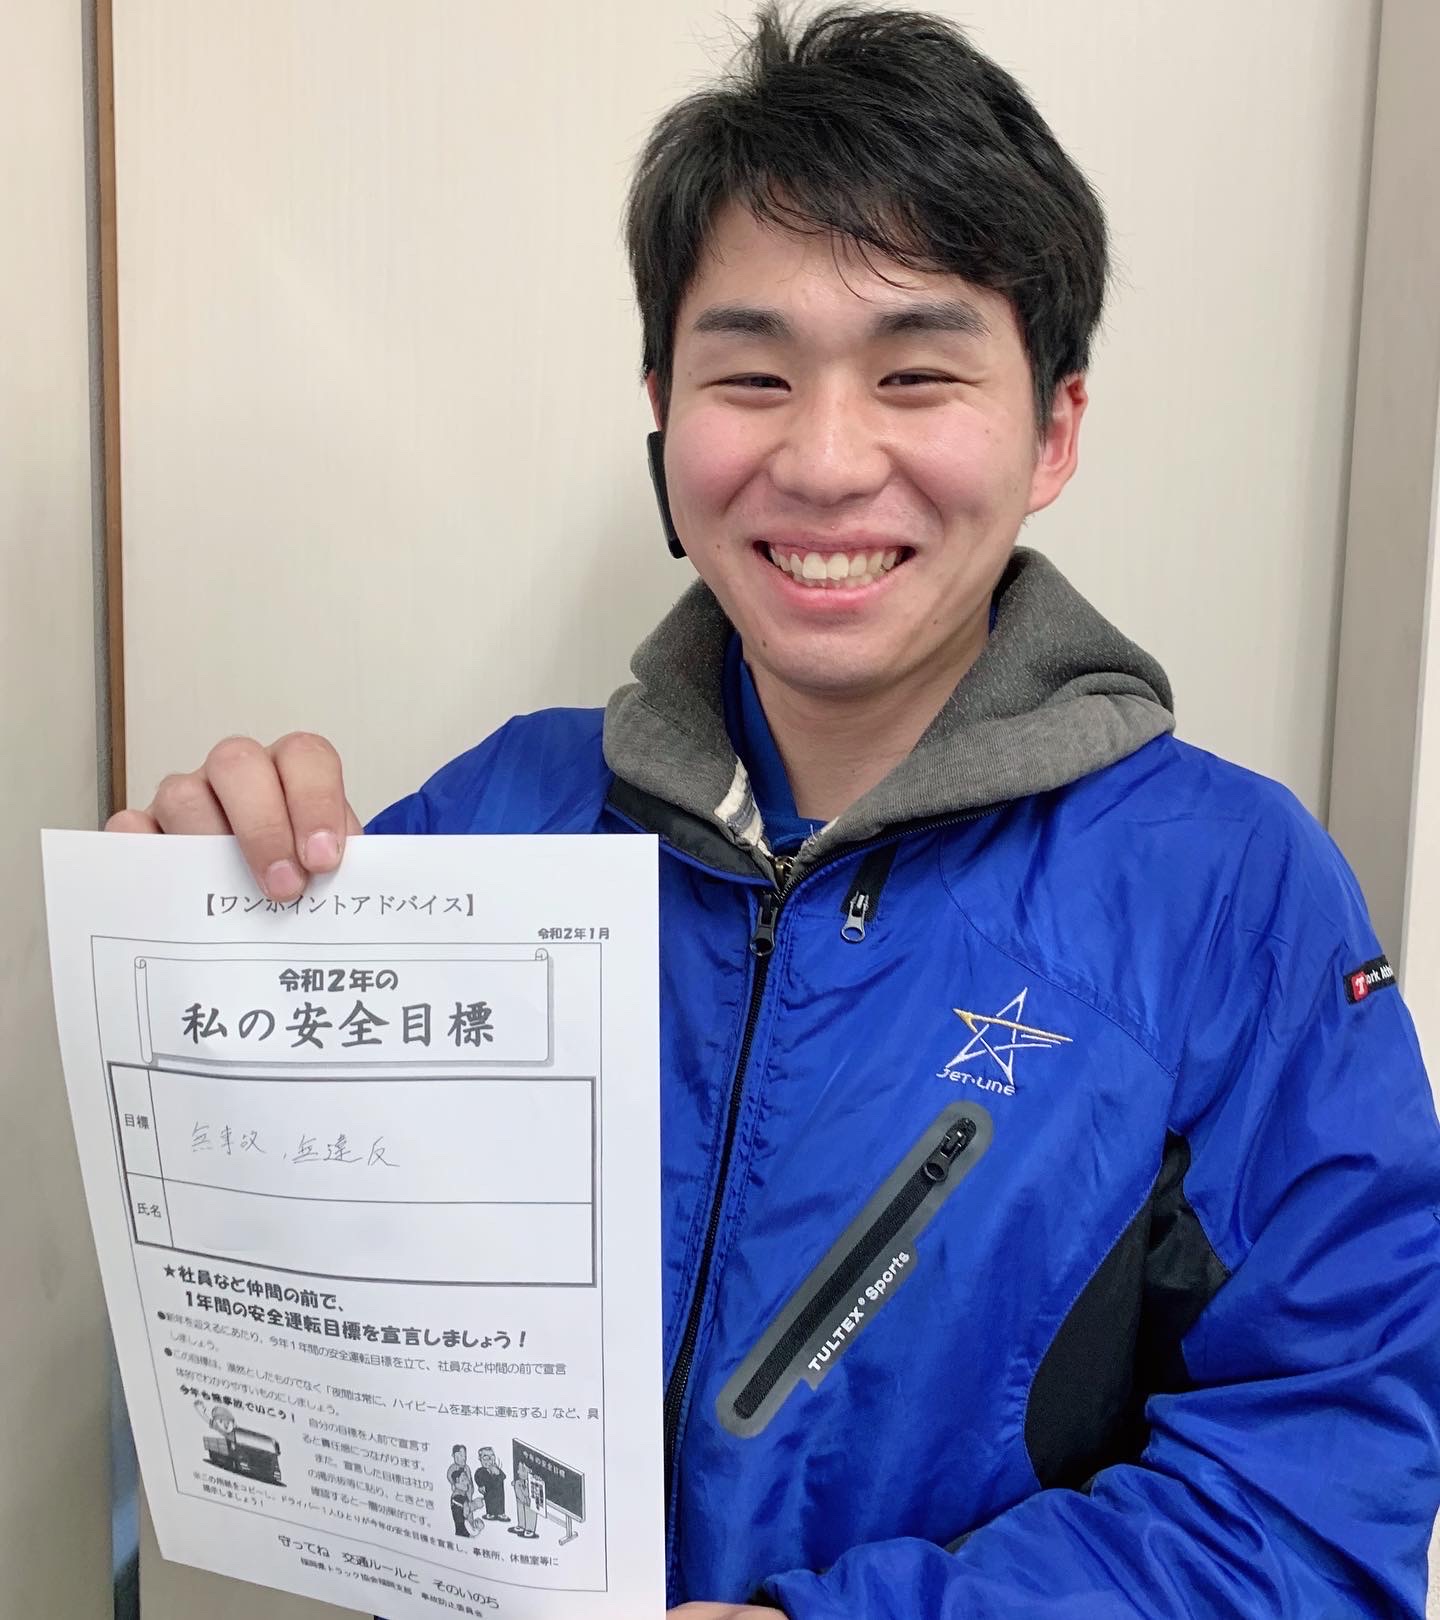 【ワンポイントアドバイス】
令和2年1月
令和2年の
私の安全目標
目標
無事故、無違反
氏名
★社員など仲間の前で、
1年間の安全運転目標を宣言しましょう!
●新年を迎えるにあたり、今年1年間の安全運転目標を立て、社員など仲間の前で宣言
しましょう。
●この目標は、漠然としたものでなく「夜間は常に、ハイビームを基本に運転する」など、具
体的でわかりやすいものにしましょう。
今年も無事故でいこう!
自分の目標を人前で宣言す
ると責任感につながります。
また、宣言した目標は社内
の掲示板等に貼り、ときどき
確認すると一層効果的です。
今年の安全目標
※この用紙をコピーし、ドライバー1人ひとりが今年の安全目標を宣言し、事務所、休憩室等に
掲示しましょう!
守ってね 交通ルールと そのいのち
福岡県トラック協会福岡支部 事故防止委員会
JET-LINE
TULTEX® Sports
T ork Ath